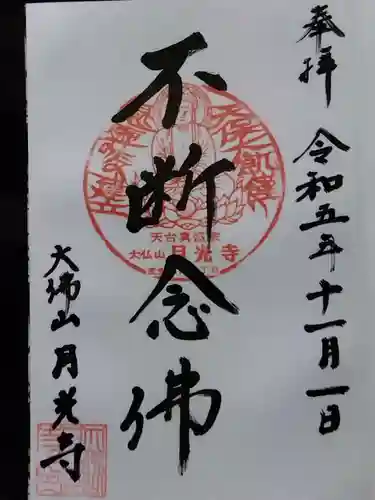 奉拝
令和五年十一月一日
不断念佛
天台真盛宗
大仏山 月光寺
大佛山 月光寺